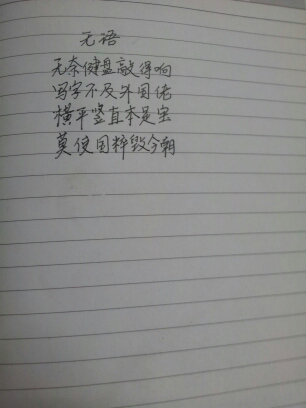 无语
无奈健盘敲得响
写字不及外国佬
横平竖直本是宝
莫使国粹毁今朝